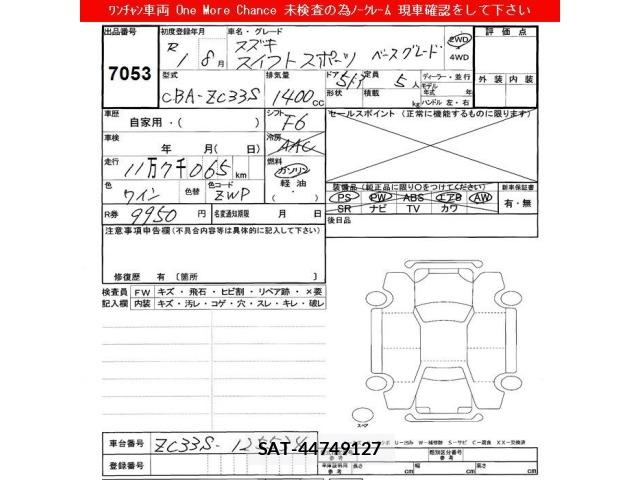 ﾜﾝﾁｬﾝ車両 One More Chance 未検査の為ﾉｰｸﾚｰﾑ 現車確認をして下さい
出品番号 初度登録年月 車名・グレード 評価点
7053 R1 8月 スズキ スイフトスポーツ ベースグレード 2WD 4WD
型式 排気量 ドア 定員 ディーラー・並行 外装 内装
CBA-ZC33S 1400cc 5ドア 5人 モデル年式 年
形状 積載 kg ハンドル 左・右
車歴 シフト セールスポイント (正常に機能するものに限ります)
自家用・( ) F6
車検 年 月 日 冷房
AAC
走行 燃料
11万7千065km ガソリン
軽油
色 色替 色コード
ワイン ZWP
装備品 (純正品に限り○をつけてください) 新車保証書
PS PW ABS エアB AW 有・無
SR ナビ TV カワ
R券 9950円 名変通知期限 月 日
後日品
注意事項申告欄 (不具合内容等は具体的に記入して下さい)
修復歴 有 〔箇所 〕
検査員 FW キズ・飛石・ヒビ割・リペア跡・×要
記入欄 内装 キズ・汚レ・コゲ・穴・スレ・キレ・破レ
スペア
車台番号 ZC33S-
SAT-44749127
登録番号
類別区分番号
長さ cm 幅 cm 高さ cm